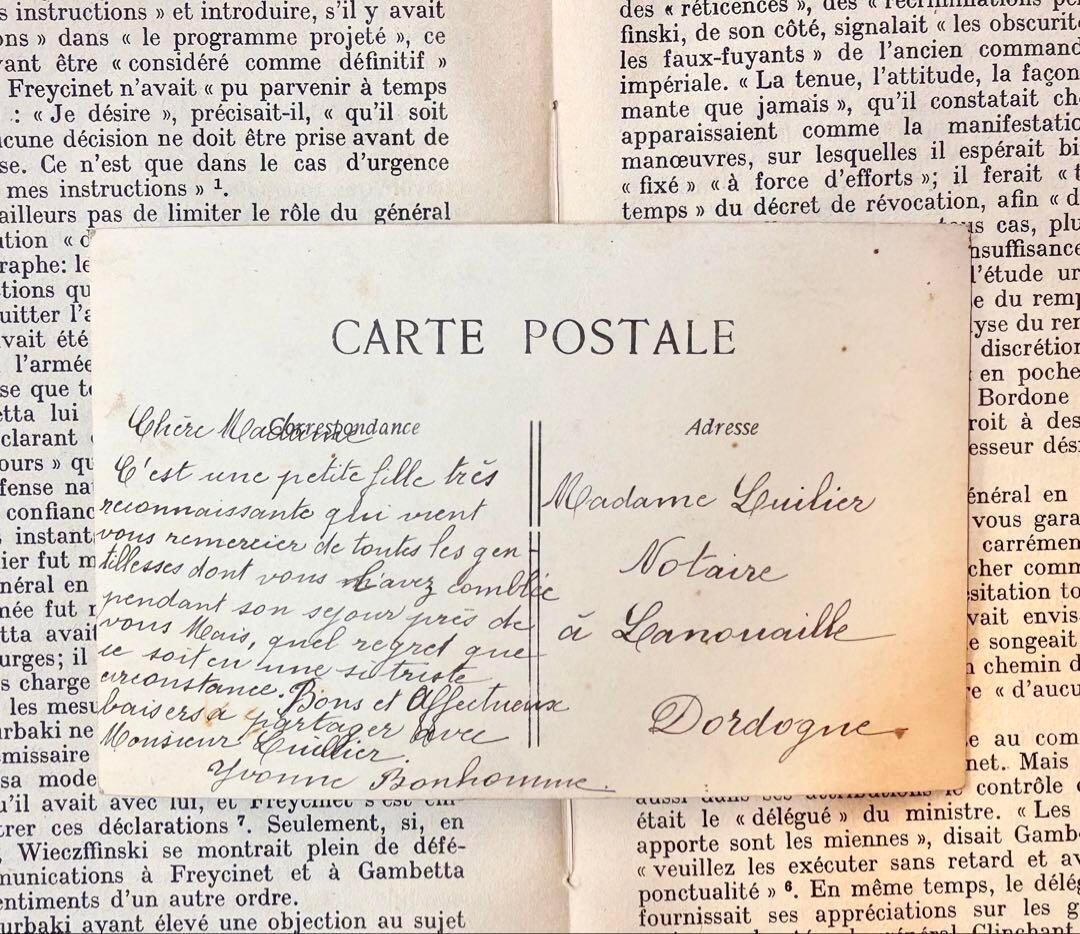 s instructions » et introduire, s'il y avait
ons » dans « le programme projeté », ce
vant être « considéré comme définitif »
Freycinet n'avait « pu parvenir à temps
: « Je désire », précisait-il, « qu'il soit
ucune décision ne doit être prise avant de
se. Ce n'est que dans le cas d'urgence
mes instructions » ¹.
ailleurs pas de limiter le rôle du général
ution « d
raphe: le
tions qu
uitter l'a
vait été
l'armée
se que te
etta lui
clarant
ours » qu
fense na
confianc
instant
ier fut m
néral en
mée fut r
tta avait
urges; il
s charge
les mesu
urbaki ne
émissaire
sa mode
u'il avait avec lui, et Freycinet s'est em-
trer ces déclarations ⁷. Seulement, si, en
, Wieczffinski se montrait plein de défé-
munications à Freycinet et à Gambetta
entiments d'un autre ordre.
urbaki ayant élevé une objection au sujet
des « réticences », des « récriminations
finski, de son côté, signalait « les obscurit
les faux-fuyants » de l'ancien command
impériale. « La tenue, l'attitude, la façon
mante que jamais », qu'il constatait ch
apparaissaient comme la manifestatio
manœuvres, sur lesquelles il espérait bi
« fixé » « à force d'efforts »; il ferait « t
temps » du décret de révocation, afin « d
tous cas, plu
nsuffisance
l'étude ur
e du remp
yse du ren
discrétion
en poche
Bordone
roit à des
esseur dési
énéral en
vous gara
carrémen
cher comm
ésitation to
vait envis
e songeait
n chemin d
re « d'aucu
e au com
net. Mais
aussi dans ses attributions le contrôle
était le « délégué » du ministre. « Les
apporte sont les miennes », disait Gamb
« veuillez les exécuter sans retard et av
ponctualité » ⁶. En même temps, le délég
fournissait ses appréciations sur les g
général Clinchant
CARTE POSTALE
Correspondance
Chère Madame
C'est une petite fille très
reconnaissante qui vient
vous remercier de toutes les gen-
tillesses dont vous l'avez comblée
pendant son sejour près de
vous Mais, quel regret que
ce soit en une si triste
circonstance. Bons et Affectueux
baisers à partager avec
Monsieur Luillier.
Yvonne Bonhomme.
Adresse
Madame Luilier
Notaire
à Lanouaille
Dordogne.